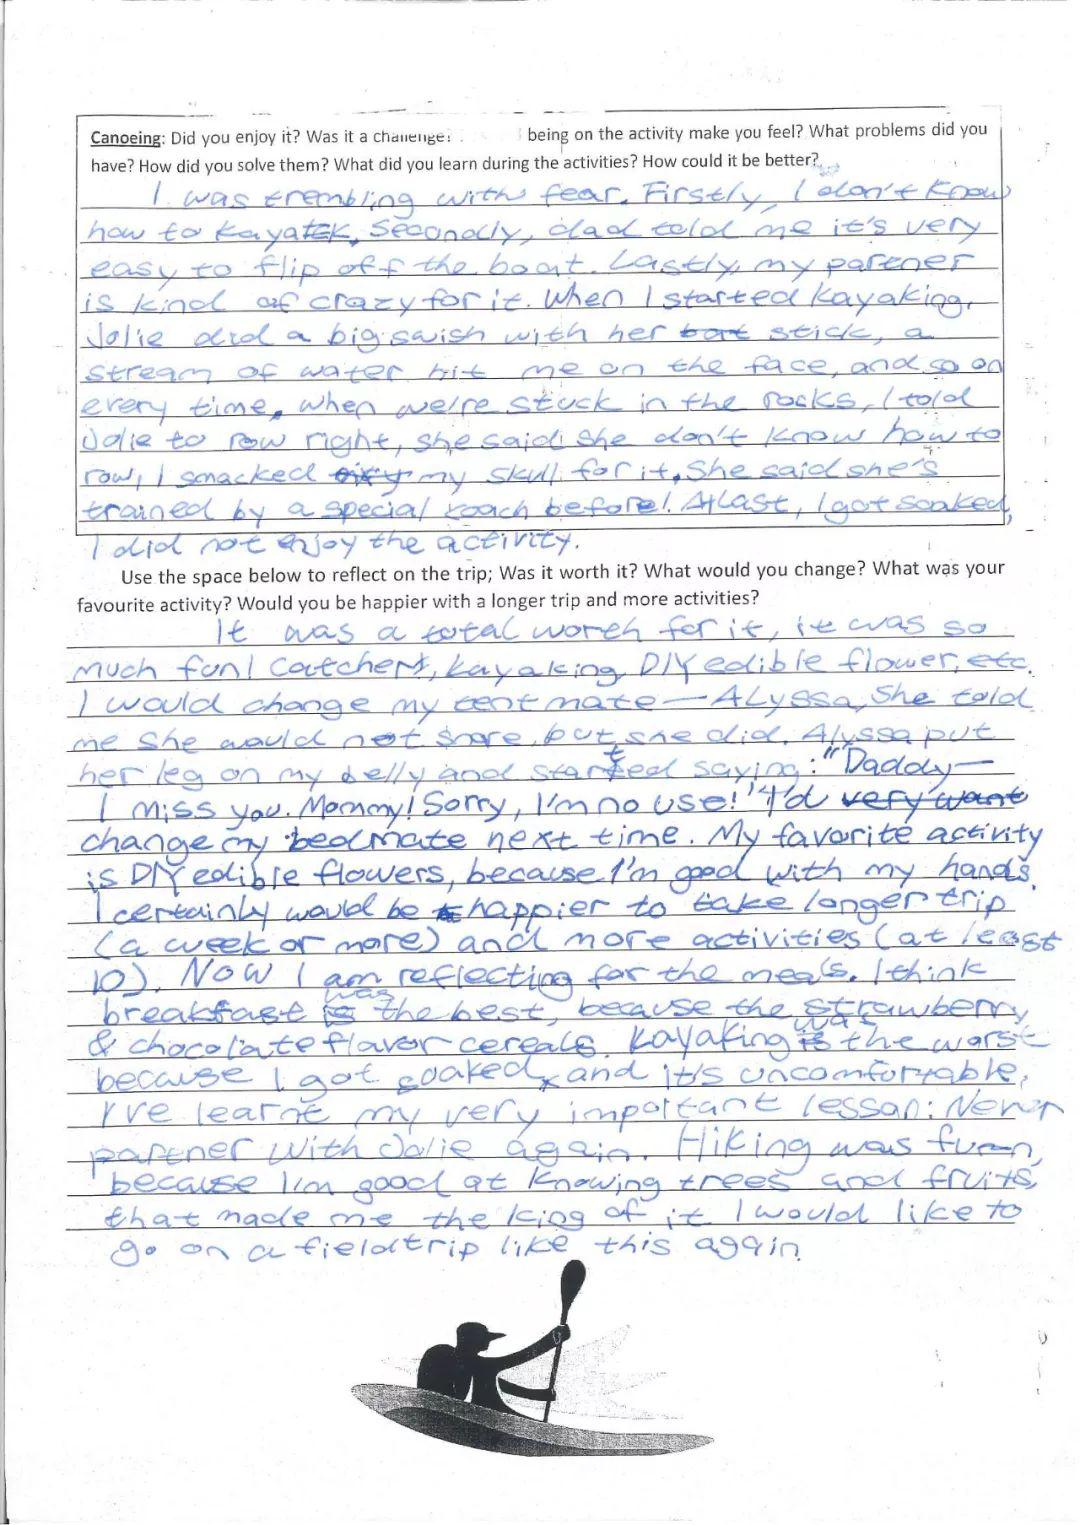 Canoeing: Did you enjoy it? Was it a challenge? being on the activity make you feel? What problems did you
have? How did you solve them? What did you learn during the activities? How could it be better?
I was trembling with fear. Firstly, I don't know
how to kayak, Secondly, dad told me it's very
easy to flip off the boat. Lastly, my partner
is kind of crazy for it. When I started kayaking,
Jolie did a big swish with her stick, a
stream of water hit me on the face, and so on
every time, when we're stuck in the rocks, I told
Jolie to row right, she said she don't know how to
row, I smacked my skull for it, She said she's
trained by a special coach before! At last, I got soaked,
I did not enjoy the activity.
Use the space below to reflect on the trip; Was it worth it? What would you change? What was your
favourite activity? Would you be happier with a longer trip and more activities?
It was a total worth for it, it was so
much fun! Catchers, kayaking, DIY edible flower, etc.
I would change my tent mate—Alyssa, She told
me she would not snore, but she did. Alyssa put
her leg on my belly and started saying: "Daddy—
I miss you. Mommy! Sorry, I'm no use!" I'd very want
change my bedmate next time. My favorite activity
is DIY edible flowers, because I'm good with my hands.
I certainly would be happier to take longer trip
(a week or more) and more activities (at least
10). Now I am reflecting for the meals. I think
breakfast was the best, because the strawberry
& chocolate flavor cereals. Kayaking was the worst
because I got soaked, and it's uncomfortable,
I've learnt my very important lesson: Never
partner with Jolie again. Hiking was fun,
because I'm good at knowing trees and fruits,
that made me the king of it I would like to
go on a fieldtrip like this again.